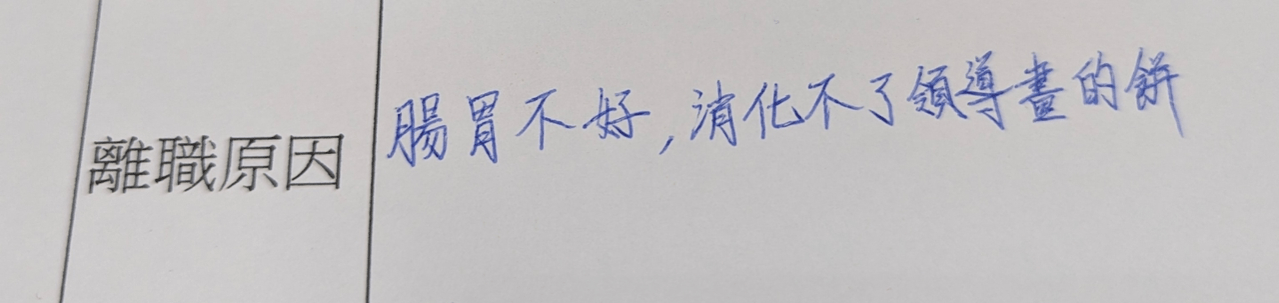 離職原因
腸胃不好,消化不了領導畫的餅